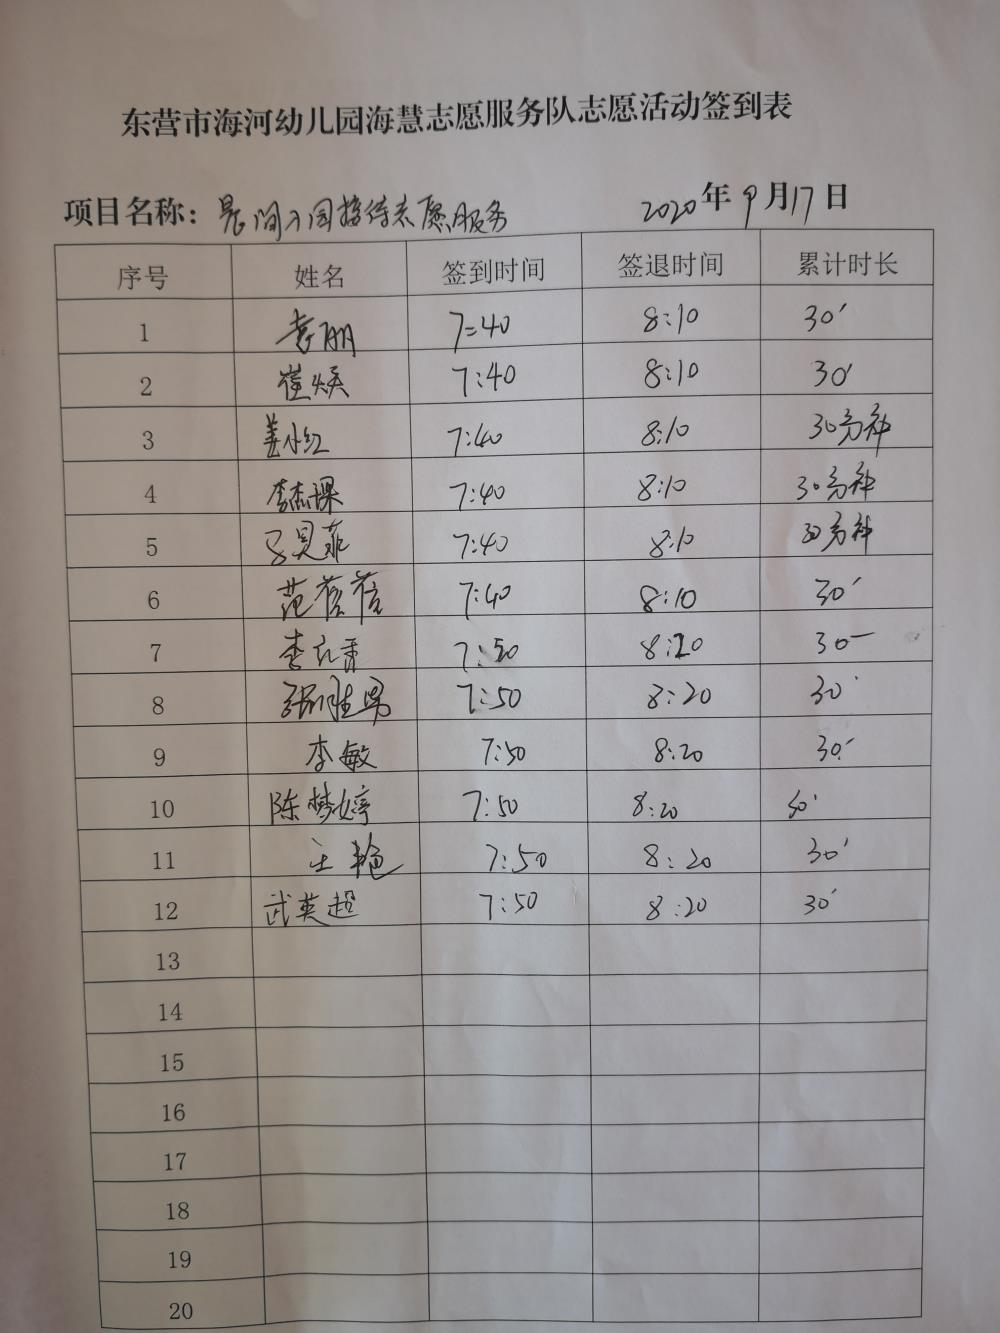 东营市海河幼儿园海慧志愿服务队志愿活动签到表
项目名称：晨间入园接待志愿服务 2020年9月17日
序号 姓名 签到时间 签退时间 累计时长
1 李朋 7:40 8:10 30′
2 崔焕 7:40 8:10 30′
3 姜小红 7:40 8:10 30分种
4 李杰 7:40 8:10 30分种
5 7:40 8:10 30分种
6 范蓓蓓 7:40 8:10 30′
7 李 7:50 8:20 30′
8 张胜男 7:50 8:20 30′
9 李敏 7:50 8:20 30′
10 陈梦婷 7:50 8:20 30′
11 王艳 7:50 8:20 30′
12 武英超 7:50 8:20 30′
13
14
15
16
17
18
19
20